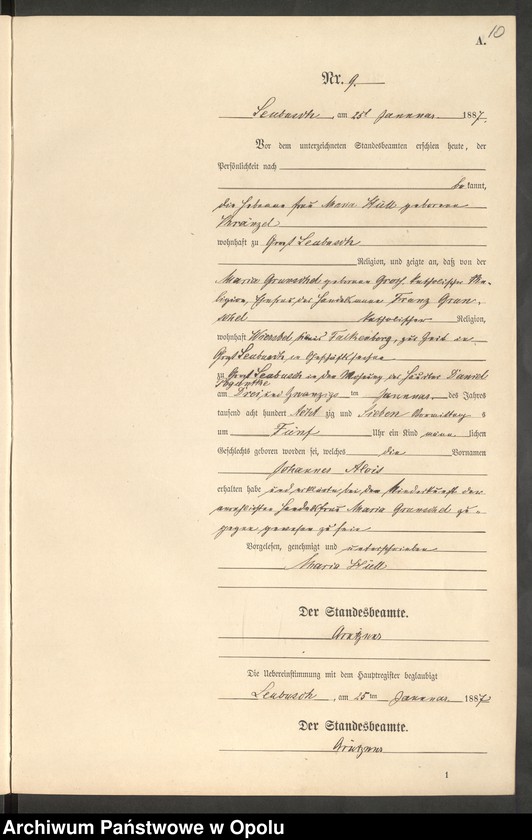 10
A.
Nr. 9.
Leubusch, am 25t Januar 1887.
Vor dem unterzeichneten Standesbeamten erschien heute, der
Persönlichkeit nach
bekannt,
die Hebamme Frau Maria Hüll geborene
wohnhaft zu Groß Leubusch
Religion, und zeigte an, daß von der
Maria Grunschel geborene Groß, katholischer Re-
ligion, Ehefrau des Handelsmann Franz Grun-
schel katholischer Religion,
wohnhaft Kreis Falkenberg, zur Zeit in
Groß Leubusch, in
zu Groß Leubusch in der Wohnung des Häusler Daniel
am Drei und Zwanzigsten Januar des Jahres
tausend acht hundert Acht zig und Sieben Vormittags
um Fünf Uhr ein Kind männlichen
Geschlechts geboren worden sei, welches die Vornamen
Johannes Alois
erhalten habe und erklärte bei der Niederkunft der
Handelsfrau Maria Grunschel zu-
gegen gewesen zu sein
Vorgelesen, genehmigt und unterschrieben
Maria Hüll
Der Standesbeamte.
Grützner
Die Uebereinstimmung mit dem Hauptregister beglaubigt
Leubusch, am 25ten Januar 1887
Der Standesbeamte.
Grützner
1
Archiwum Państwowe w Opolu